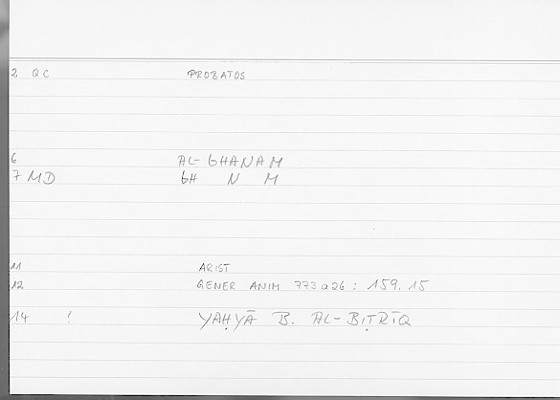 2 QC PROBATOS
6 AL-GHANAM
7 MD GH N M
11 ARIST
12 GENER ANIM 773a26 : 159.15
14 ! YAḤYĀ B. AL-BIṬRĪQ